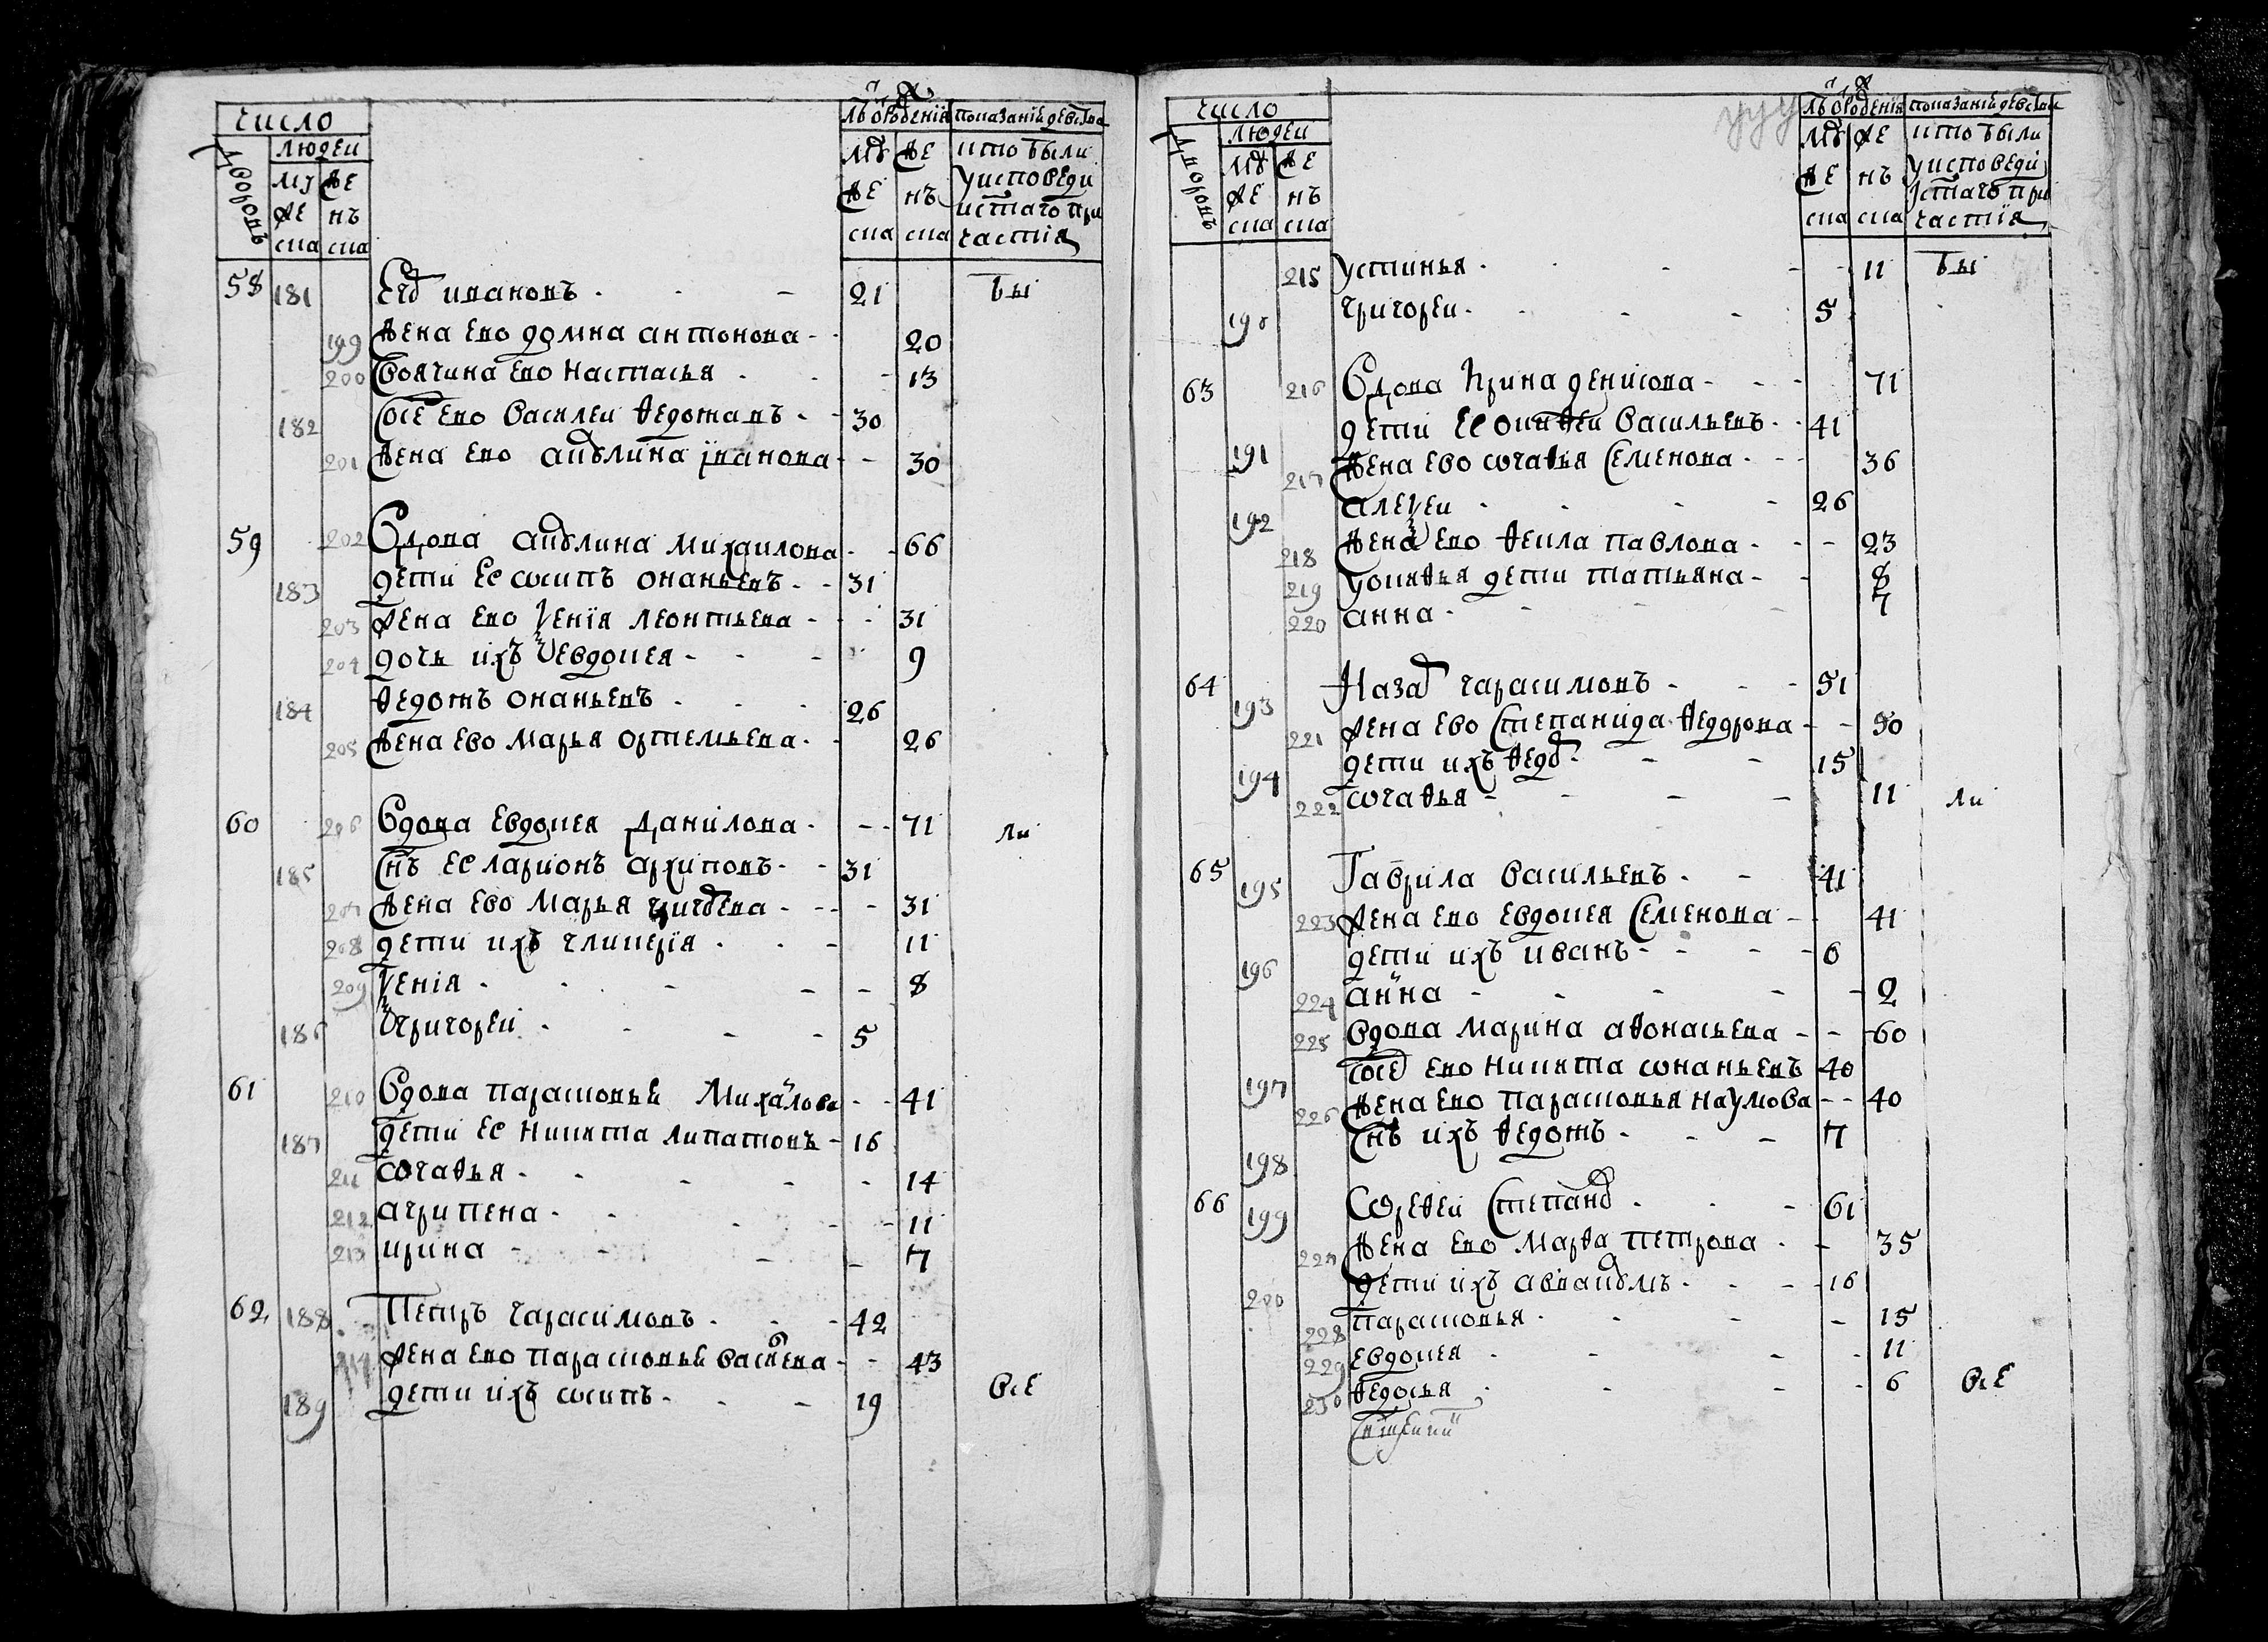 число
лѣ ѿ рѡденїя
показанїи действа
людеи
дворовъ
муже
ска
женъ
ска
муже
ска
женъ
ска
кто были
у исповеди
и стаго при
частїя
58 181 Егоръ ивановъ 21 бы
199 жена ево домна антонова 20
200 своячина ево настасья 13
182 сосе ево василеи ѳедотовъ 30
201 жена ево акулина івановa 30
59 202 вдова акулина михаилова 66
183 дети ее ѡсипъ онаньевъ 31
203 жена ево ѯенїя леонтьева 31
204 дочь ихъ евдокея 9
184 ѳедотъ онаньевъ 26
205 жена ево марья ортемьева 26
60 206 вдова евдокея данилова 71 ли
185 снъ ее ларионъ архиповъ 31
207 жена ево марья григорева 31
208 дети ихъ гликерїя 11
209 ѯенїя 8
186 григореи 5
61 210 вдова парасковья михаилова 41
187 дети ее никита липатовъ 16
211 ѡгаѳья 14
212 агрипена 11
213 ирина 7
62 188 петръ гарасимовъ 42
214 жена ево парасковья василева 43
189 дети ихъ ѡсипъ 19 все
число
лѣ ѿ рѡденїя
показанїи действа
людеи
дворовъ
муже
ска
женъ
ска
муже
ска
женъ
ска
кто были
у исповеди
і стаго при
частїя
215 устинья 11 бы
190 григореи 5
63 216 вдова ірина денисова 71
дети ее ѳокѳеи васильевъ 41
191 217 жена ево ѡгаѳья семенова 36
192 алеѯеи 26
218 жена ево ѳекла павлова 23
219 у окиѳья дети татьяна 8
220 анна 7
64 193 назаръ гарасимовъ 51
221 жена ево степанида ѳедорова 50
194 дети ихъ ѳедоръ 15
222 ѡгаѳья 11 ли
65 195 гаврила васильевъ 41
223 жена ево евдокея семенова 41
196 дети ихъ иванъ 6
224 анна 2
225 вдова марина аѳонасьева 60
197 сосе ево никита ѡнаньевъ 40
226 жена ево парасковья наумова 40
198 снъ ихъ ѳедотъ 7
66 199 ѡреѳеи степановъ 61
227 жена ево марѳа петрова 35
200 дети ихъ аввакумъ 16
228 парасковья 15
229 евдокея 11
230 ѳедосья 6 все